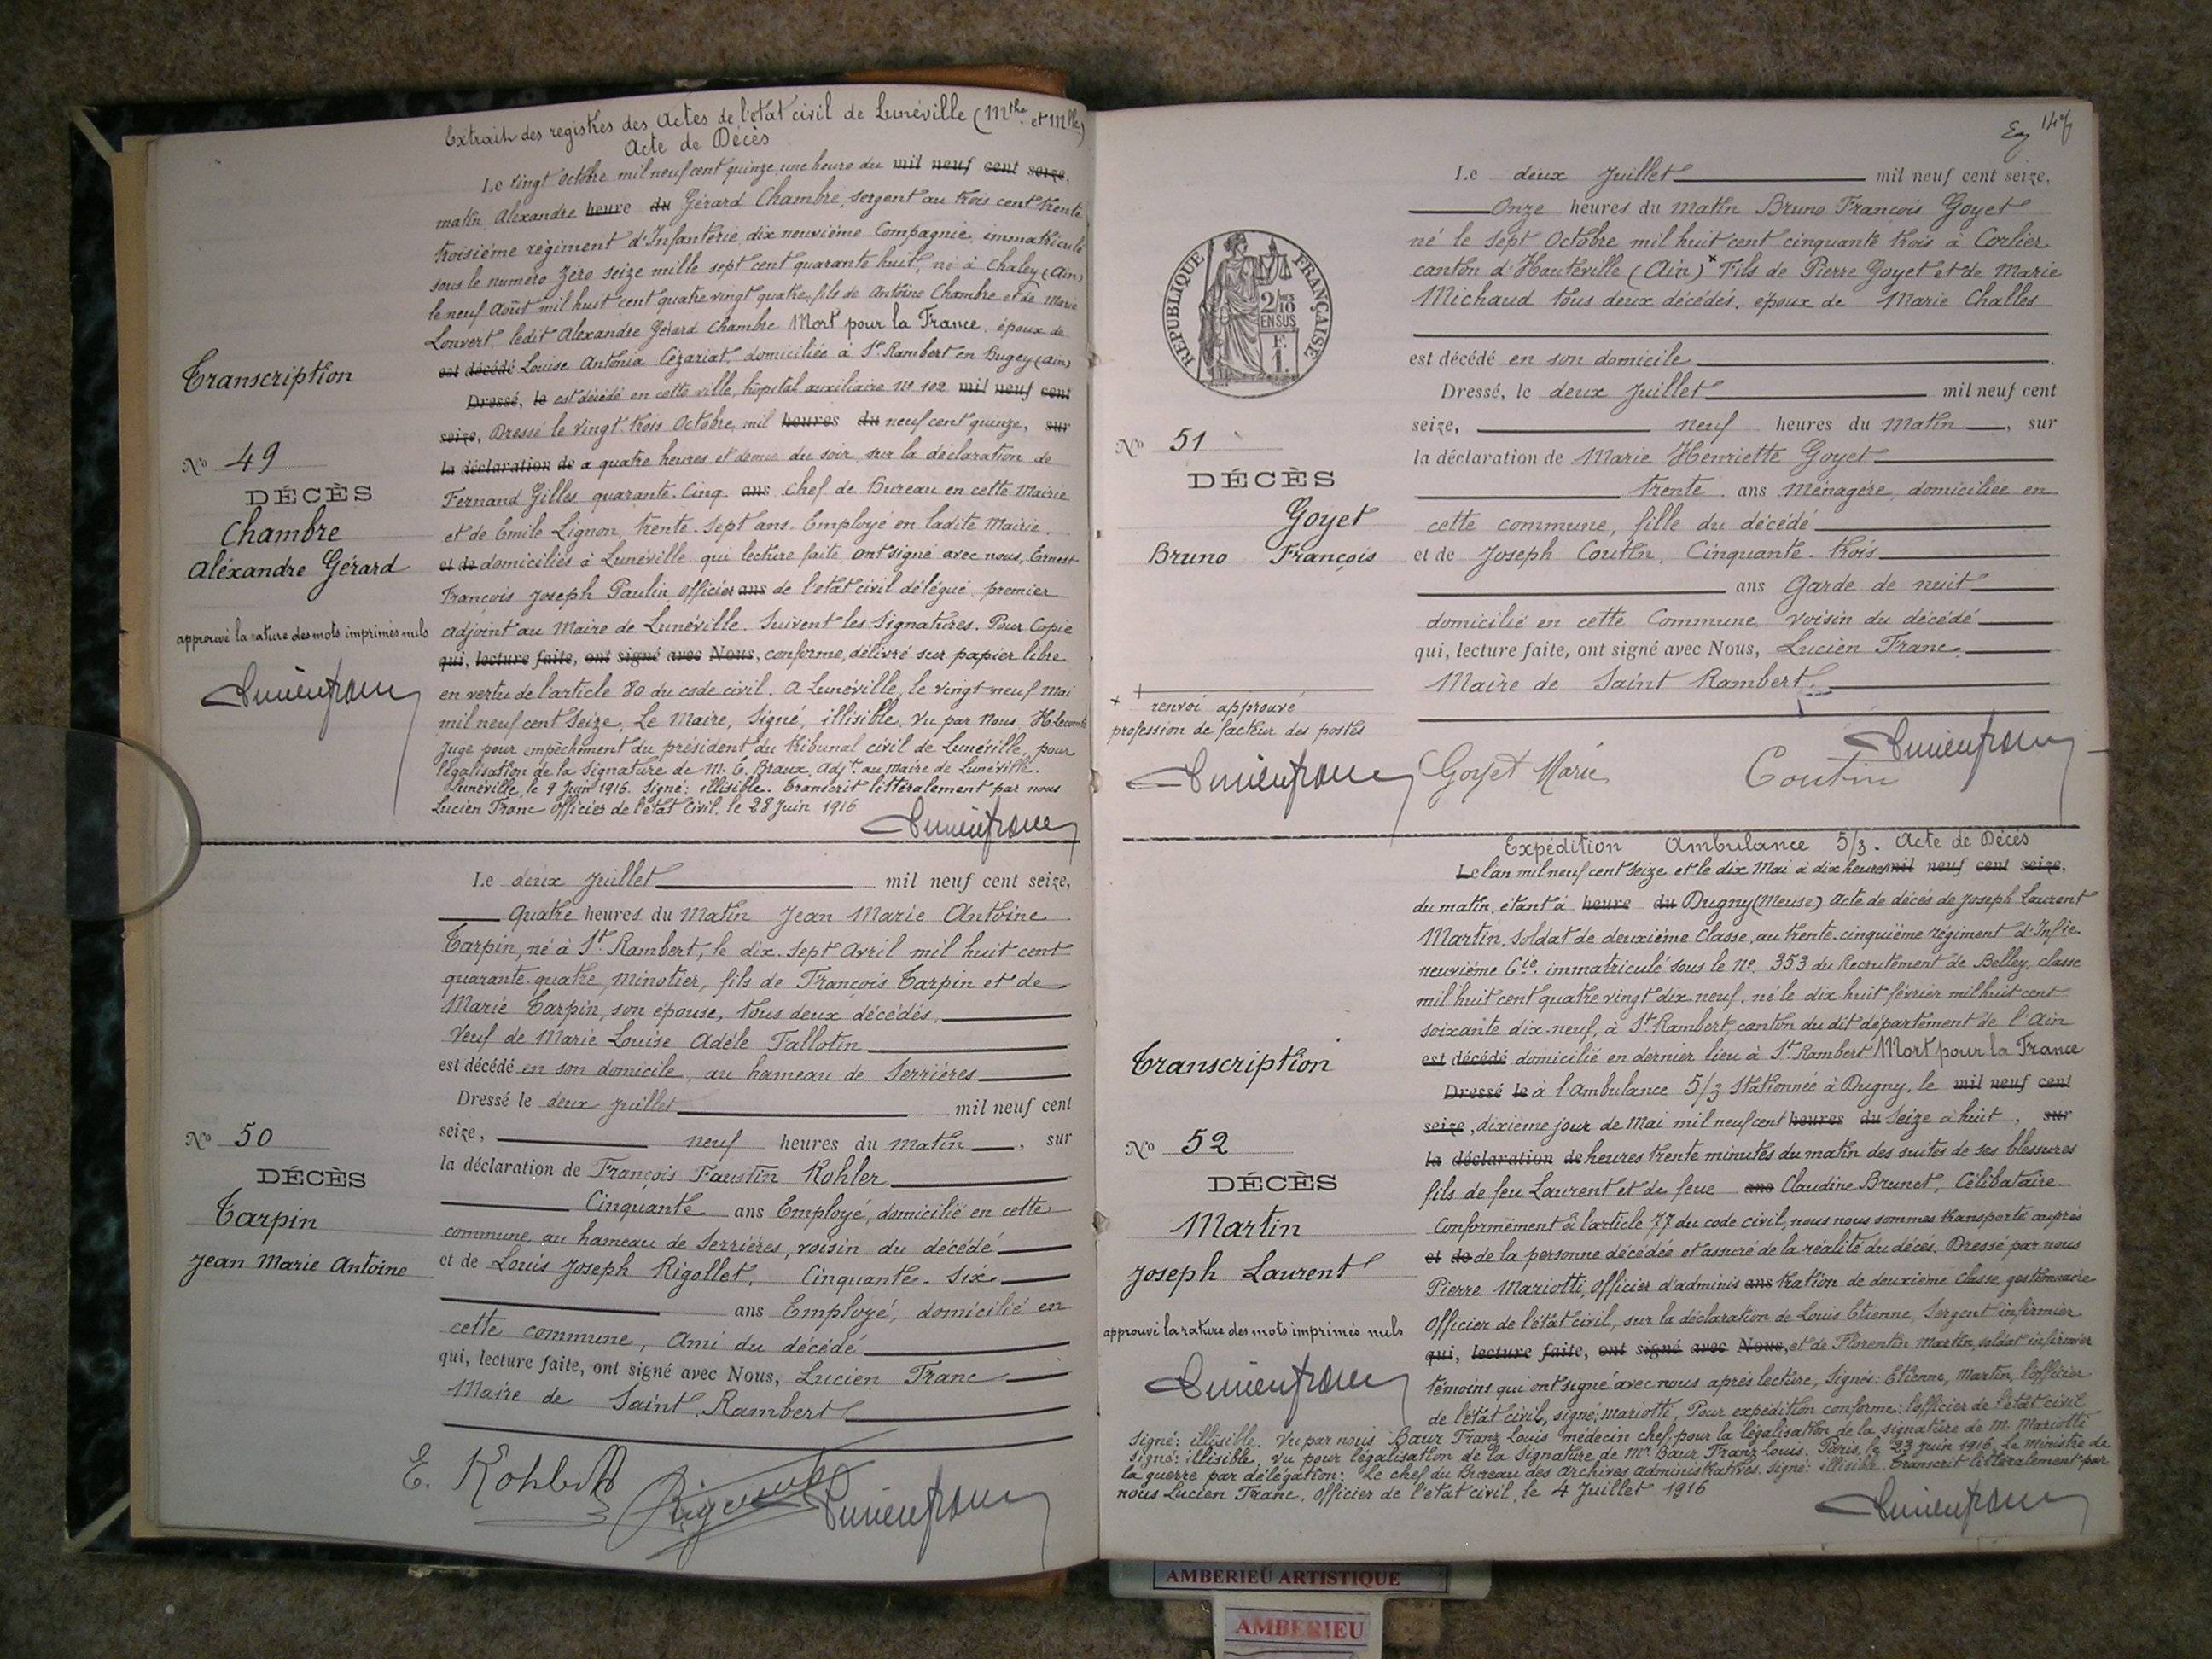 Extrait des registres des Actes de l'etat civil de Lunéville (Mthe et Mlle)
Acte de Décès
Le vingt Octobre mil neuf cent quinze une heure du mil neuf cent seize,
matin Alexandre heure du Gérard Chambre, sergent au trois cent trente
troisième régiment d'Infanterie, dix neuvième Compagnie, immatriculé
sous le numéro Zéro seize mille sept cent quarante huit, né à Chaley (Ain)
le neuf Août mil huit cent quatre vingt quatre, fils de Antoine Chambre et de Marie
Lonvert, ledit Alexandre Gérard Chambre Mort pour la France, époux de
est décédé Louise Antonia Cézariat, domiciliée à St Rambert en Bugey (Ain)
Dressé, le est décédé en cette ville, hôpital auxiliaire No 102 mil neuf cent
seize, Dressé le vingt trois Octobre, mil heures du neuf cent quinze, sur
la déclaration de a quatre heures et demie du soir, sur la déclaration de
Fernand Gilles quarante-Cinq ans Chef de Bureau en cette Mairie
et de Emile Lignon, trente-sept ans, Employé en ladite Mairie,
et de domiciliés à Lunéville qui lecture faite, ont signé avec nous, Ernest
François Joseph Paulin, Officier ans de l'etat civil délégué, premier
adjoint au Maire de Lunéville. Suivent les Signatures. Pour Copie
qui, lecture faite, ont signé avec Nous, conforme, délivré sur papier libre
en vertu de l'article 80 du code civil. A Lunéville, le vingt neuf Mai
mil neuf cent Seize, Le Maire, Signé, illisible, Vu par Nous H. Lecomte
Juge pour empêchement du président du tribunal civil de Lunéville, pour
légalisation de la Signature de M. E. Braux, Adjt. au Maire de Lunéville.
Lunéville, le 9 Juin 1916. Signé: illisible. Transcrit littéralement par nous
Lucien Franc Officier de l'état Civil, le 28 Juin 1916
Lucien franc
Transcription
No 49
DÉCÈS
Chambre
Aléxandre Gérard
approuvé la rature des mots imprimés nuls
Lucien franc
Le deux Juillet mil neuf cent seize,
Quatre heures du Matin Jean Marie Antoine
Tarpin, né à St. Rambert, le dix-sept Avril mil huit cent
quarante-quatre, Minotier, fils de François Tarpin et de
Marie Tarpin, son épouse, tous deux décédés,
Veuf de Marie Louise Adèle Tallotin
est décédé en son domicile, au hameau de Serrières
Dressé le deux Juillet mil neuf cent
seize, neuf heures du matin, sur
la déclaration de François Faustin Kohler
Cinquante ans Employé, domicilié en cette
commune, au hameau de Serrières, voisin du décédé
et de Louis Joseph Rigollet, Cinquante-Six
ans Employé, domicilié en
cette commune, Ami du décédé
qui, lecture faite, ont signé avec Nous, Lucien Franc
Maire de Saint Rambert
No 50
DÉCÈS
Tarpin
Jean Marie Antoine
Lucien franc
Le deux Juillet mil neuf cent seize,
Onze heures du Matin Bruno François Goyet
né le sept Octobre mil huit cent cinquante trois à Corlier
canton d'Hauteville (Ain) × Fils de Pierre Goyet et de Marie
Michaud tous deux décédés, époux de Marie Challes
est décédé en son domicile
Dressé, le deux Juillet mil neuf cent
seize, neuf heures du Matin, sur
la déclaration de Marie Henriette Goyet
trente ans Ménagère, domiciliée en
cette commune, fille du décédé
et de Joseph Coutin, Cinquante-trois
ans Garde de nuit
domicilié en cette Commune, Voisin du décédé
qui, lecture faite, ont signé avec Nous, Lucien Franc
Maire de Saint Rambert
REPUBLIQUE FRANÇAISE
2/10
EN SUS
F.
1.
No 51
DÉCÈS
Goyet
Bruno François
× renvoi approuvé
profession de facteur des postes
Lucien franc
Goyet Marie
Coutin
Lucien franc
Expédition Ambulance 5/3. Acte de Décès
Le l'an mil neuf cent seize et le dix Mai à dix heures mil neuf cent seize,
du matin, étant à heure du Dugny (Meuse) Acte de décès de Joseph Laurent
Martin, Soldat de deuxième Classe, au trente-cinquième régiment d'Infie.
neuvième Cie. immatriculé sous le No. 353 du Recrutement de Belley, classe
mil huit cent quatre vingt dix neuf, né le dix huit février mil huit cent
soixante dix-neuf, à St Rambert, canton du dit département de l'Ain
est décédé domicilié en dernier lieu à St. Rambert Mort pour la France
Dressé le à l'Ambulance 5/3 Stationnée à Dugny, le mil neuf cent
seize, dixième jour de Mai mil neuf cent heures du Seize à huit, sur
la déclaration de heures trente minutes du matin des suites de ses blessures
fils de feu Laurent et de feue ans Claudine Brunet, Célibataire
Conformément à l'article 77 du code civil, nous nous sommes transporté auprès
et de de la personne décédée et assuré de la réalité du décès. Dressé par nous
Pierre Mariotti, Officier d'adminis ans tration de deuxième classe, gestionnaire
Officier de l'état civil, sur la déclaration de Louis Etienne, Sergent infirmier
qui, lecture faite, ont signé avec Nous, et de Florentin Martin soldat infirmier
témoins qui ont signé avec nous après lecture, Signés: Etienne, Martin, l'officier
de l'état civil, signé: Mariotti, Pour expédition conforme: l'officier de l'état civil
Signé: illisible. Vu par nous Baur Franz Louis médecin chef, pour la légalisation de la signature de M. Mariotti
Signé: illisible, vu pour légalisation de la Signature de Mr Baur Franz Louis. Paris, le 23 Juin 1916, Le Ministre de
la guerre par délégation: Le chef du Bureau des Archives Administratives. Signé: illisible. Transcrit littéralement par
nous Lucien Franc, Officier de l'état civil, le 4 Juillet 1916
Lucien franc
Transcription
No 52
DÉCÈS
Martin
Joseph Laurent
approuvé la rature des mots imprimés nuls
Lucien franc
AMBERIEU ARTISTIQUE
AMBERIEU